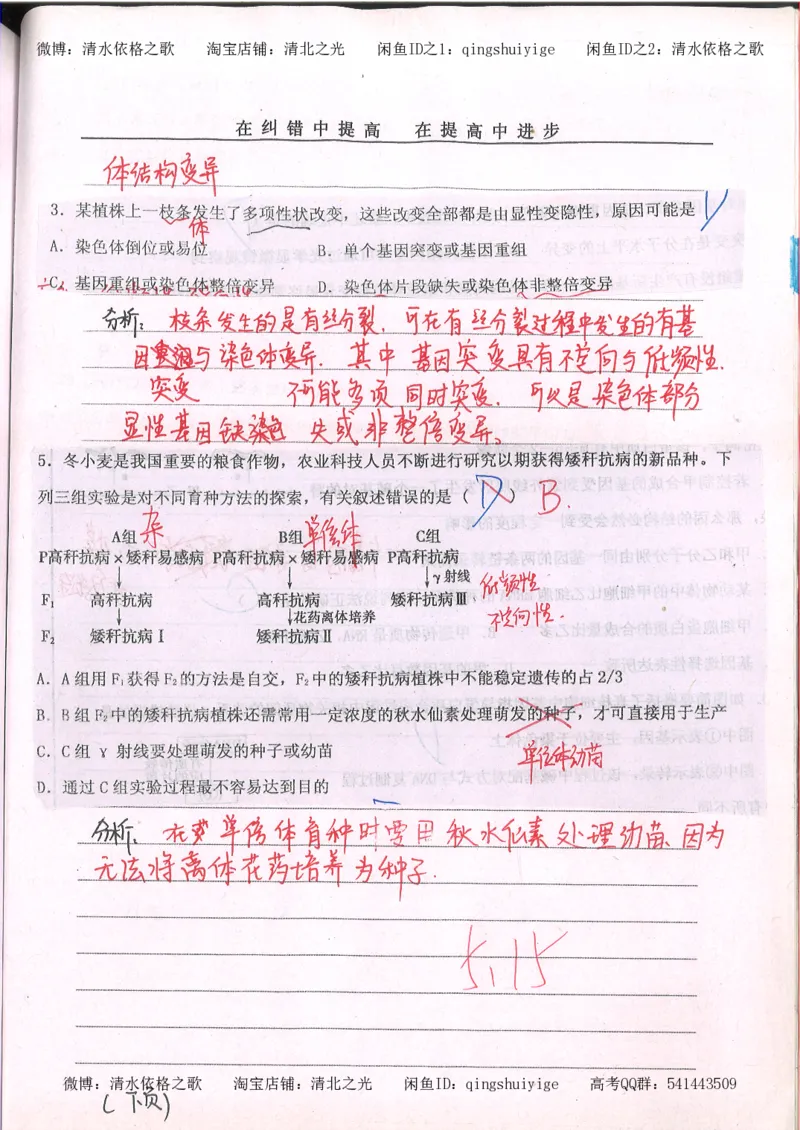 微博：清水依格之歌 淘宝店铺：清北之光 闲鱼ID之1：qingshuiyige 闲鱼ID之2：清水依格之歌
在纠错中提高 在提高中进步
体结构变异
3. 某植株上一枝条发生了多项性状改变，这些改变全部都是由显性变隐性，原因可能是
体
A. 染色体倒位或易位 B. 单个基因突变或基因重组
C. 基因重组或染色体整倍变异 D. 染色体片段缺失或染色体非整倍变异
分析：枝条发生的是有丝分裂，可在有丝分裂过程中发生的有基
因突变与染色体变异．其中基因突变具有不定向与低频性．
突变 不可能多项同时突变．可以是染色体部分
显性基因缺 失或非整倍变异。
5. 冬小麦是我国重要的粮食作物，农业科技人员不断进行研究以期获得矮秆抗病的新品种。下
列三组实验是对不同育种方法的探索，有关叙述错误的是（D） B.
A组 杂 B组 单倍体 C组
P高秆抗病×矮秆易感病 P高秆抗病×矮秆易感病 P高秆抗病
γ射线 低频性
F₁ 高秆抗病 高秆抗病 矮秆抗病Ⅲ 不定向性.
花药离体培养
F₂ 矮秆抗病Ⅰ 矮秆抗病Ⅱ
A. A组用F₁获得F₂的方法是自交，F₂中的矮秆抗病植株中不能稳定遗传的占2/3
B. B组F₂中的矮秆抗病植株还需常用一定浓度的秋水仙素处理萌发的种子，才可直接用于生产
C. C组 γ 射线要处理萌发的种子或幼苗
单倍体幼苗
D. 通过C组实验过程最不容易达到目的
分析．在单倍体育种时要用秋水仙素处理幼苗．因为
无法将离体花药培养为种子．
5.15
微博：清水依格之歌 淘宝店铺：清北之光 闲鱼ID：qingshuiyige 高考QQ群：541443509
（下页）